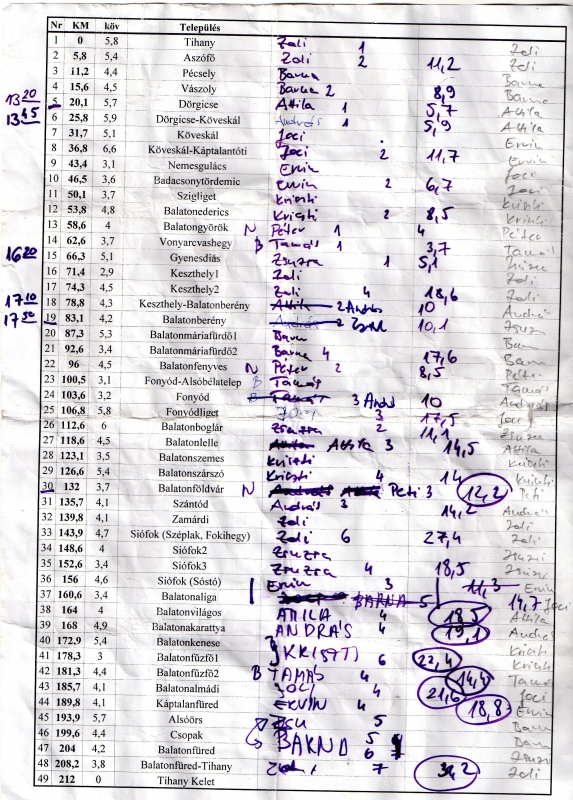 Nr KM köv Település
1 0 5,8 Tihany Zoli 1 Zoli
2 5,8 5,4 Aszófő Zoli 2 11,2 Zoli
3 11,2 4,4 Pécsely Barna Barna
4 15,6 4,5 Vászoly Barna 2 8,9 Barna
13 20 5 20,1 5,7 Dörgicse Attila 1 5,7 Attila
13 45 6 25,8 5,9 Dörgicse-Köveskál András 1 5,9 Attila
7 31,7 5,1 Köveskál Joci Ervin
8 36,8 6,6 Köveskál-Káptalantóti Joci 2 11,7 Joci
9 43,4 3,1 Nemesgulács Ervin Joci
10 46,5 3,6 Badacsonytördemic Ervin 2 6,7
11 50,1 3,7 Szigliget Kriszti Kriszti
12 53,8 4,8 Balatonederics Kriszti 2 8,5 Kriszti
13 58,6 4 Balatongyörök N Péter 1 4 Péter
14 62,6 3,7 Vonyarcvashegy B Tamás 1 3,7 Tamás
16 20 15 66,3 5,1 Gyenesdiás Zsuzsa 1 5,1
16 71,4 2,9 Keszthely1 Zoli Zoli
17 74,3 4,5 Keszthely2 Zoli 4 18,6 Zoli
17 10 18 78,8 4,3 Keszthely-Balatonberény Attila 2 András 10 András
17 50 19 83,1 4,2 Balatonberény András 2 10,1
20 87,3 5,3 Balatonmáriafürdő1 Barna Barna
21 92,6 3,4 Balatonmáriafürdő2 Barna 4 17,6 Barna
22 96 4,5 Balatonfenyves N Péter 2 8,5 Péter
23 100,5 3,1 Fonyód-Alsóbélatelep B Tamás Tamás
24 103,6 3,2 Fonyód Tamás 3 András 10 András
25 106,8 5,8 Fonyódliget Joci 3 17,5 Joci
26 112,6 6 Balatonboglár Zsuzsa 2 11,1 Zsuzsa
27 118,6 4,5 Balatonlelle Attila 3 14,5 Attila
28 123,1 3,5 Balatonszemes Kriszti Kriszti
29 126,6 5,4 Balatonszárszó Kriszti 4 14 Kriszti
30 132 3,7 Balatonföldvár N András Peti 3 12,2 Peti
31 135,7 4,1 Szántód András 3 14,2 András
32 139,8 4,1 Zamárdi Zoli Zoli
33 143,9 4,7 Siófok (Széplak, Fokihegy) Zoli 6 27,4 Zoli
34 148,6 4 Siófok2 Zsuzsa Zsuzsi
35 152,6 3,4 Siófok3 Zsuzsa 4 18,5 Zsuzsi
36 156 4,6 Siófok (Sóstó) Ervin 3 11,3 Ervin
37 160,6 3,4 Balatonaliga BARNA 5 14,7 Joci
38 164 4 Balatonvilágos ATTILA 4 18,5 Attila
39 168 4,9 Balatonakarattya ANDRÁS 4 19,1 András
40 172,9 5,4 Balatonkenese Kriszti
41 178,3 3 Balatonfűzfő1 KRISZTI 6 22,4 Kriszti
42 181,3 4,4 Balatonfűzfő2 B TAMÁS 4 14,4 Tamás
43 185,7 4,1 Balatonalmádi JOCI 4 21,6 Joci
44 189,8 4,1 Káptalanfüred ERVIN 4 18,8 Ervin
45 193,9 5,7 Alsóörs ZSU 5 Barna
46 199,6 4,4 Csopak 5 Barna
47 204 4,2 Balatonfüred 6 Zsuzsi
48 208,2 3,8 Balatonfüred-Tihany 7 34,2 Zoli
49 212 0 Tihany Kelet Zoli